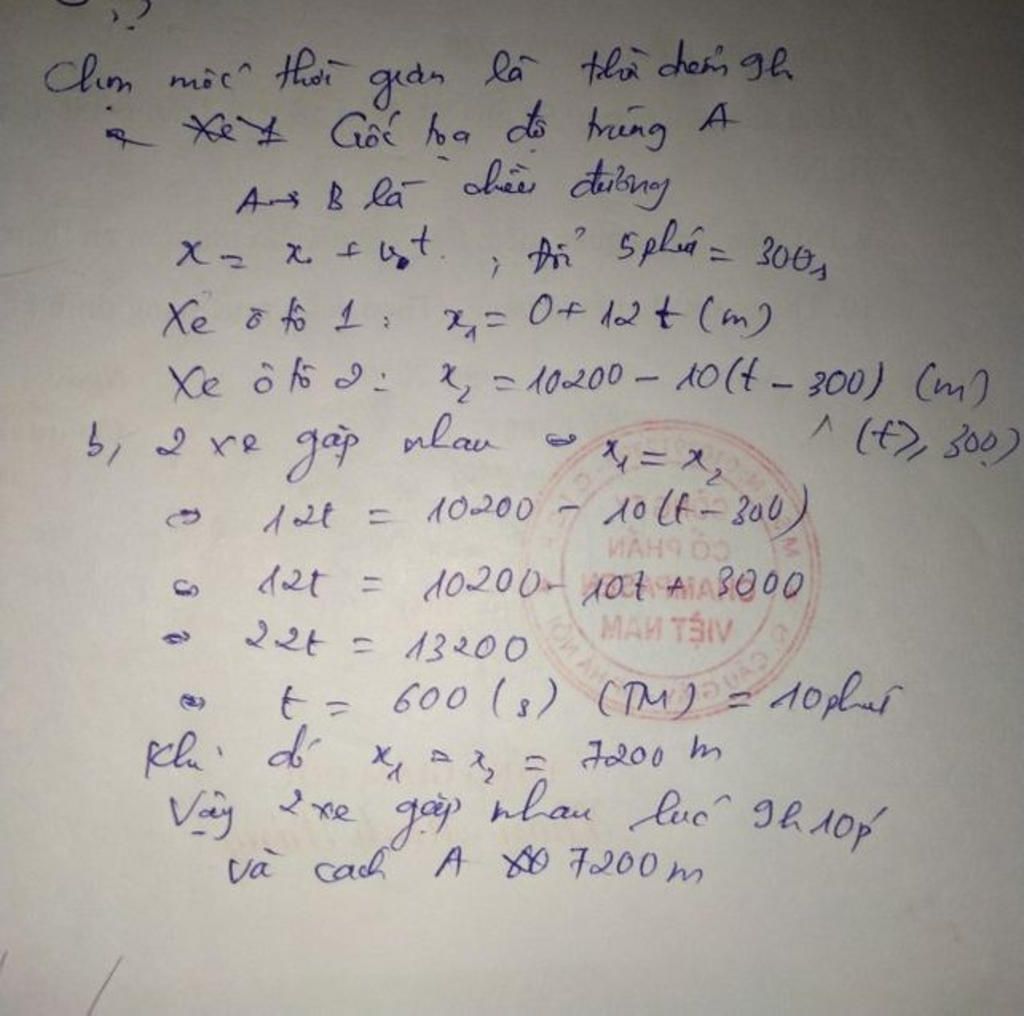 Chọn mốc thời gian là thời điểm 9h
Gốc tọa độ trùng A
A → B là chiều dương
x = x₀ + v₀t ; đổi 5 phút = 300s
Xe ô tô 1 : x₁ = 0 + 12t (m)
Xe ô tô 2 : x₂ = 10200 - 10(t - 300) (m)
^ (t ≥ 300)
b, 2 xe gặp nhau ⇔ x₁ = x₂
⇔ 12t = 10200 - 10(t - 300)
⇔ 12t = 10200 - 10t + 3000
⇔ 22t = 13200
⇔ t = 600 (s) (TM) = 10 phút
Khi đó x₁ = x₂ = 7200 m
Vậy 2 xe gặp nhau lúc 9h10p
và cách A 7200 m
CỔ PHẦN
VIỆT NAM